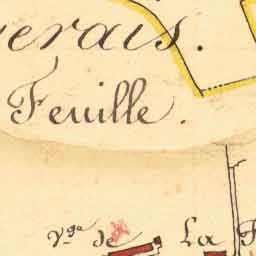 erais.
Feuille.
Vge de La F